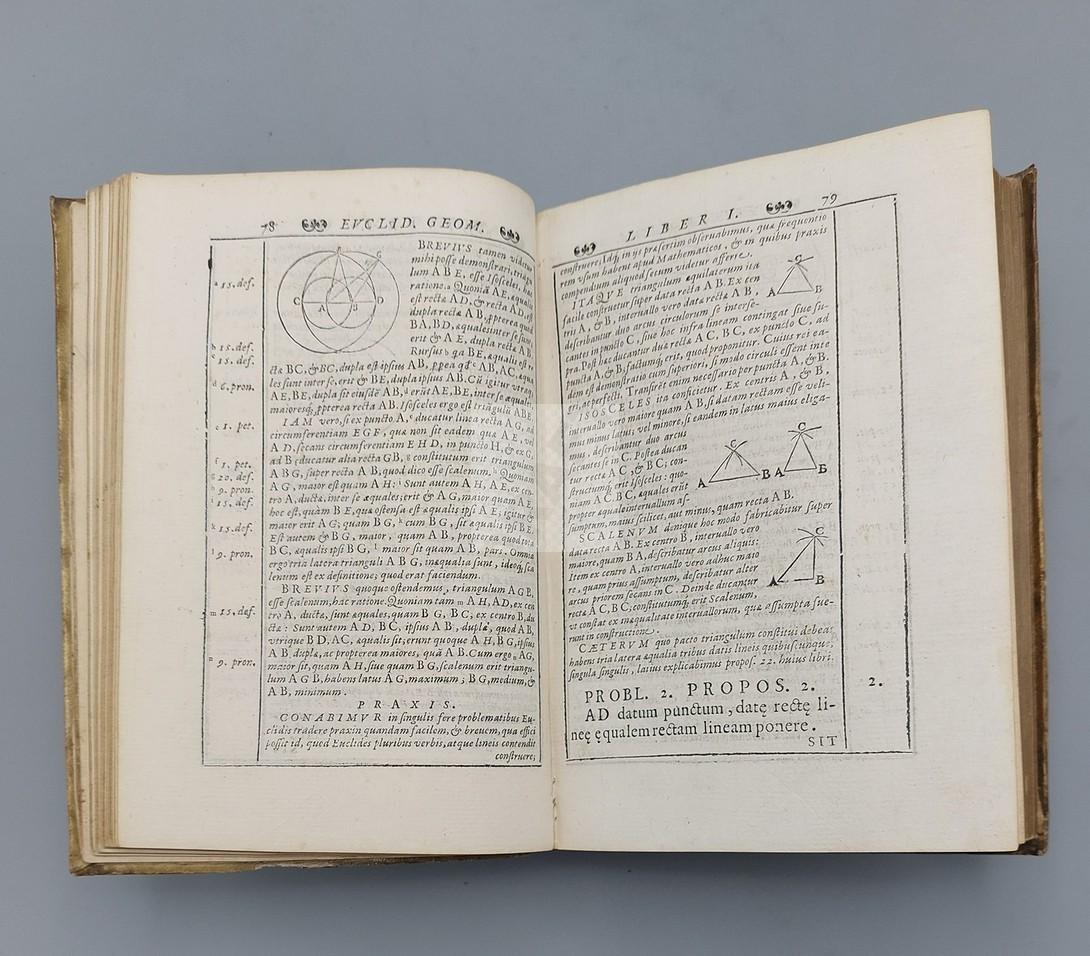 78 EVCLID. GEOM.
BREVIVS tamen videtur
mihi posse demonstrari, triāgu
lum A B E, esse Isosceles, hac
ratione. Quoniā AE, æqualis
est rectæ AD, & recta AD, est
dupla rectæ AB, ꝓpterea quod
BA, BD, æquales inter se sunt,
erit & A E, dupla rectæ AB.
Rursus, ꝗa BE, æqualis est re
ctæ BC, & BC, dupla est ipsius AB, ꝓpea qđ AB, AC, æqua
les sunt inter se, erit & BE, dupla ipsius AB. Cū igitur vtraq;
AE, BE, dupla sit eiusdē AB, erūt AE, BE, inter se æquales
maioresq; ꝓpterea recta AB. Isosceles ergo est triāgulū ABE.
IAM vero, si ex puncto A, ducatur linea recta AG, ad
circumferentiam EGF, quæ non sit eadem quæ AE, vel
A D, secans circumferentiam E H D, in puncto H, & ex G,
ad B, educatur alia recta GB, constitutum erit triangulum
A B G, super recta A B, quod dico esse scalenum. Quoniam
AG, maior est quam A H: Sunt autem A H, A E, ex cen-
tro A, ductæ, inter se æquales; erit & AG, maior quam AE,
hoc est, quàm B E, quæ ostensa est æqualis ipsi AE; igitur &
maior erit A G; quam BG, cum BG, sit æqualis ipsi BE.
Est autem & B G, maior, quam A B, propterea quod tota
BC, æqualis ipsi BG, maior sit quam A B, pars. Omnia
ergo tria latera trianguli A B G, inæqualia sunt, ideoq; sca
lenum est ex definitione; quod erat faciendum.
BREVIVS quoque ostendemus, triangulum A G B,
esse scalenum, hac ratione. Quoniam tam A H, AD, ex cen
tro A, ductæ, sunt æquales, quam B G, BC; ex centro B, du
ctæ: Sunt autem A D, B C, ipsius A B, duplæ, quod AB,
vtrique B D, AC, æqualis sit; erunt quoque A H, B G, ipsius
A B, duplæ, ac propterea maiores, quā A B. Cum ergo AG,
maior sit, quam A H, siue quam B G, scalenum erit triangu-
lum A G B, habens latus A G, maximum; B G, medium, &
A B, minimum.
P R A X I S.
CONABIMVR in singulis fere problematibus Eu-
clidis tradere praxin quandam facilem, & breuem, qua effici
possit id, quod Euclides pluribus verbis, atque lineis contendit
construere;
a 15. def.
b 15. def.
c 15. def.
d 6. pron.
e 1. pet.
f 1. pet.
g 20. def.
h 9. pron.
i 15. def.
k 15. def.
l 9. pron.
m 15. def.
n 9. pron.
E
G
H
C
A
B
D
F
LIBER I. 79
construere; Idq; in ijs præsertim obseruabimus, quæ frequentio
rem vsum habent apud Mathematicos, & in quibus praxis
compendium aliquod secum videtur afferre.
ITAQVE triangulum æquilaterum ita
facile construetur super data recta A B. Ex cen
tris A, & B, interuallo vero datæ rectæ A B,
describantur duo arcus circulorum se interse-
cantes in puncto C, siue hoc infra lineam contingat siue su-
pra. Post hæc ducantur duæ rectæ A C, B C, ex puncto C, ad
puncta A, & B, factumq; erit, quod proponitur. Cuius rei ea-
dem est demonstratio cum superiori, si modo circuli essent inte
gri, ac perfecti. Transirēt enim necessario per puncta A, & B.
ISOSCELES ita conficietur. Ex centris A, & B,
interuallo vero maiore quam A B, si datam rectam esse veli-
mus minus latus; vel minore, si eandem in latus maius eliga-
mus, describantur duo arcus
secantes se in C. Postea ducan
tur rectæ A C, & B C; con-
structumq; erit Isosceles: quo-
niam A C, B C, æquales erūt
propter æquale interuallum as-
sumptum, maius scilicet, aut minus, quam recta A B.
SCALENVM denique hoc modo fabricabitur super
data recta A B. Ex centro B, interuallo vero
maiore, quam B A, describatur arcus aliquis:
Item ex centro A, interuallo vero adhuc maio
re, quam prius assumptum, describatur alter
arcus priorem secans in C. Deinde ducantur
rectæ A C, B C, constitutumq; erit Scalenum,
vt constat ex inæqualitate interuallorum, quæ assumpta fue-
runt in constructione.
CÆTERVM quo pacto triangulum constitui debeat
habens tria latera æqualia tribus datis lineis quibuscunque,
singula singulis, latius explicabimus propos. 22. huius libri.
PROBL. 2. PROPOS. 2.
2.
AD datum punctum, datę rectę li-
neę ęqualem rectam lineam ponere.
SIT
C
A B
C
A B
C
A B
C
A B